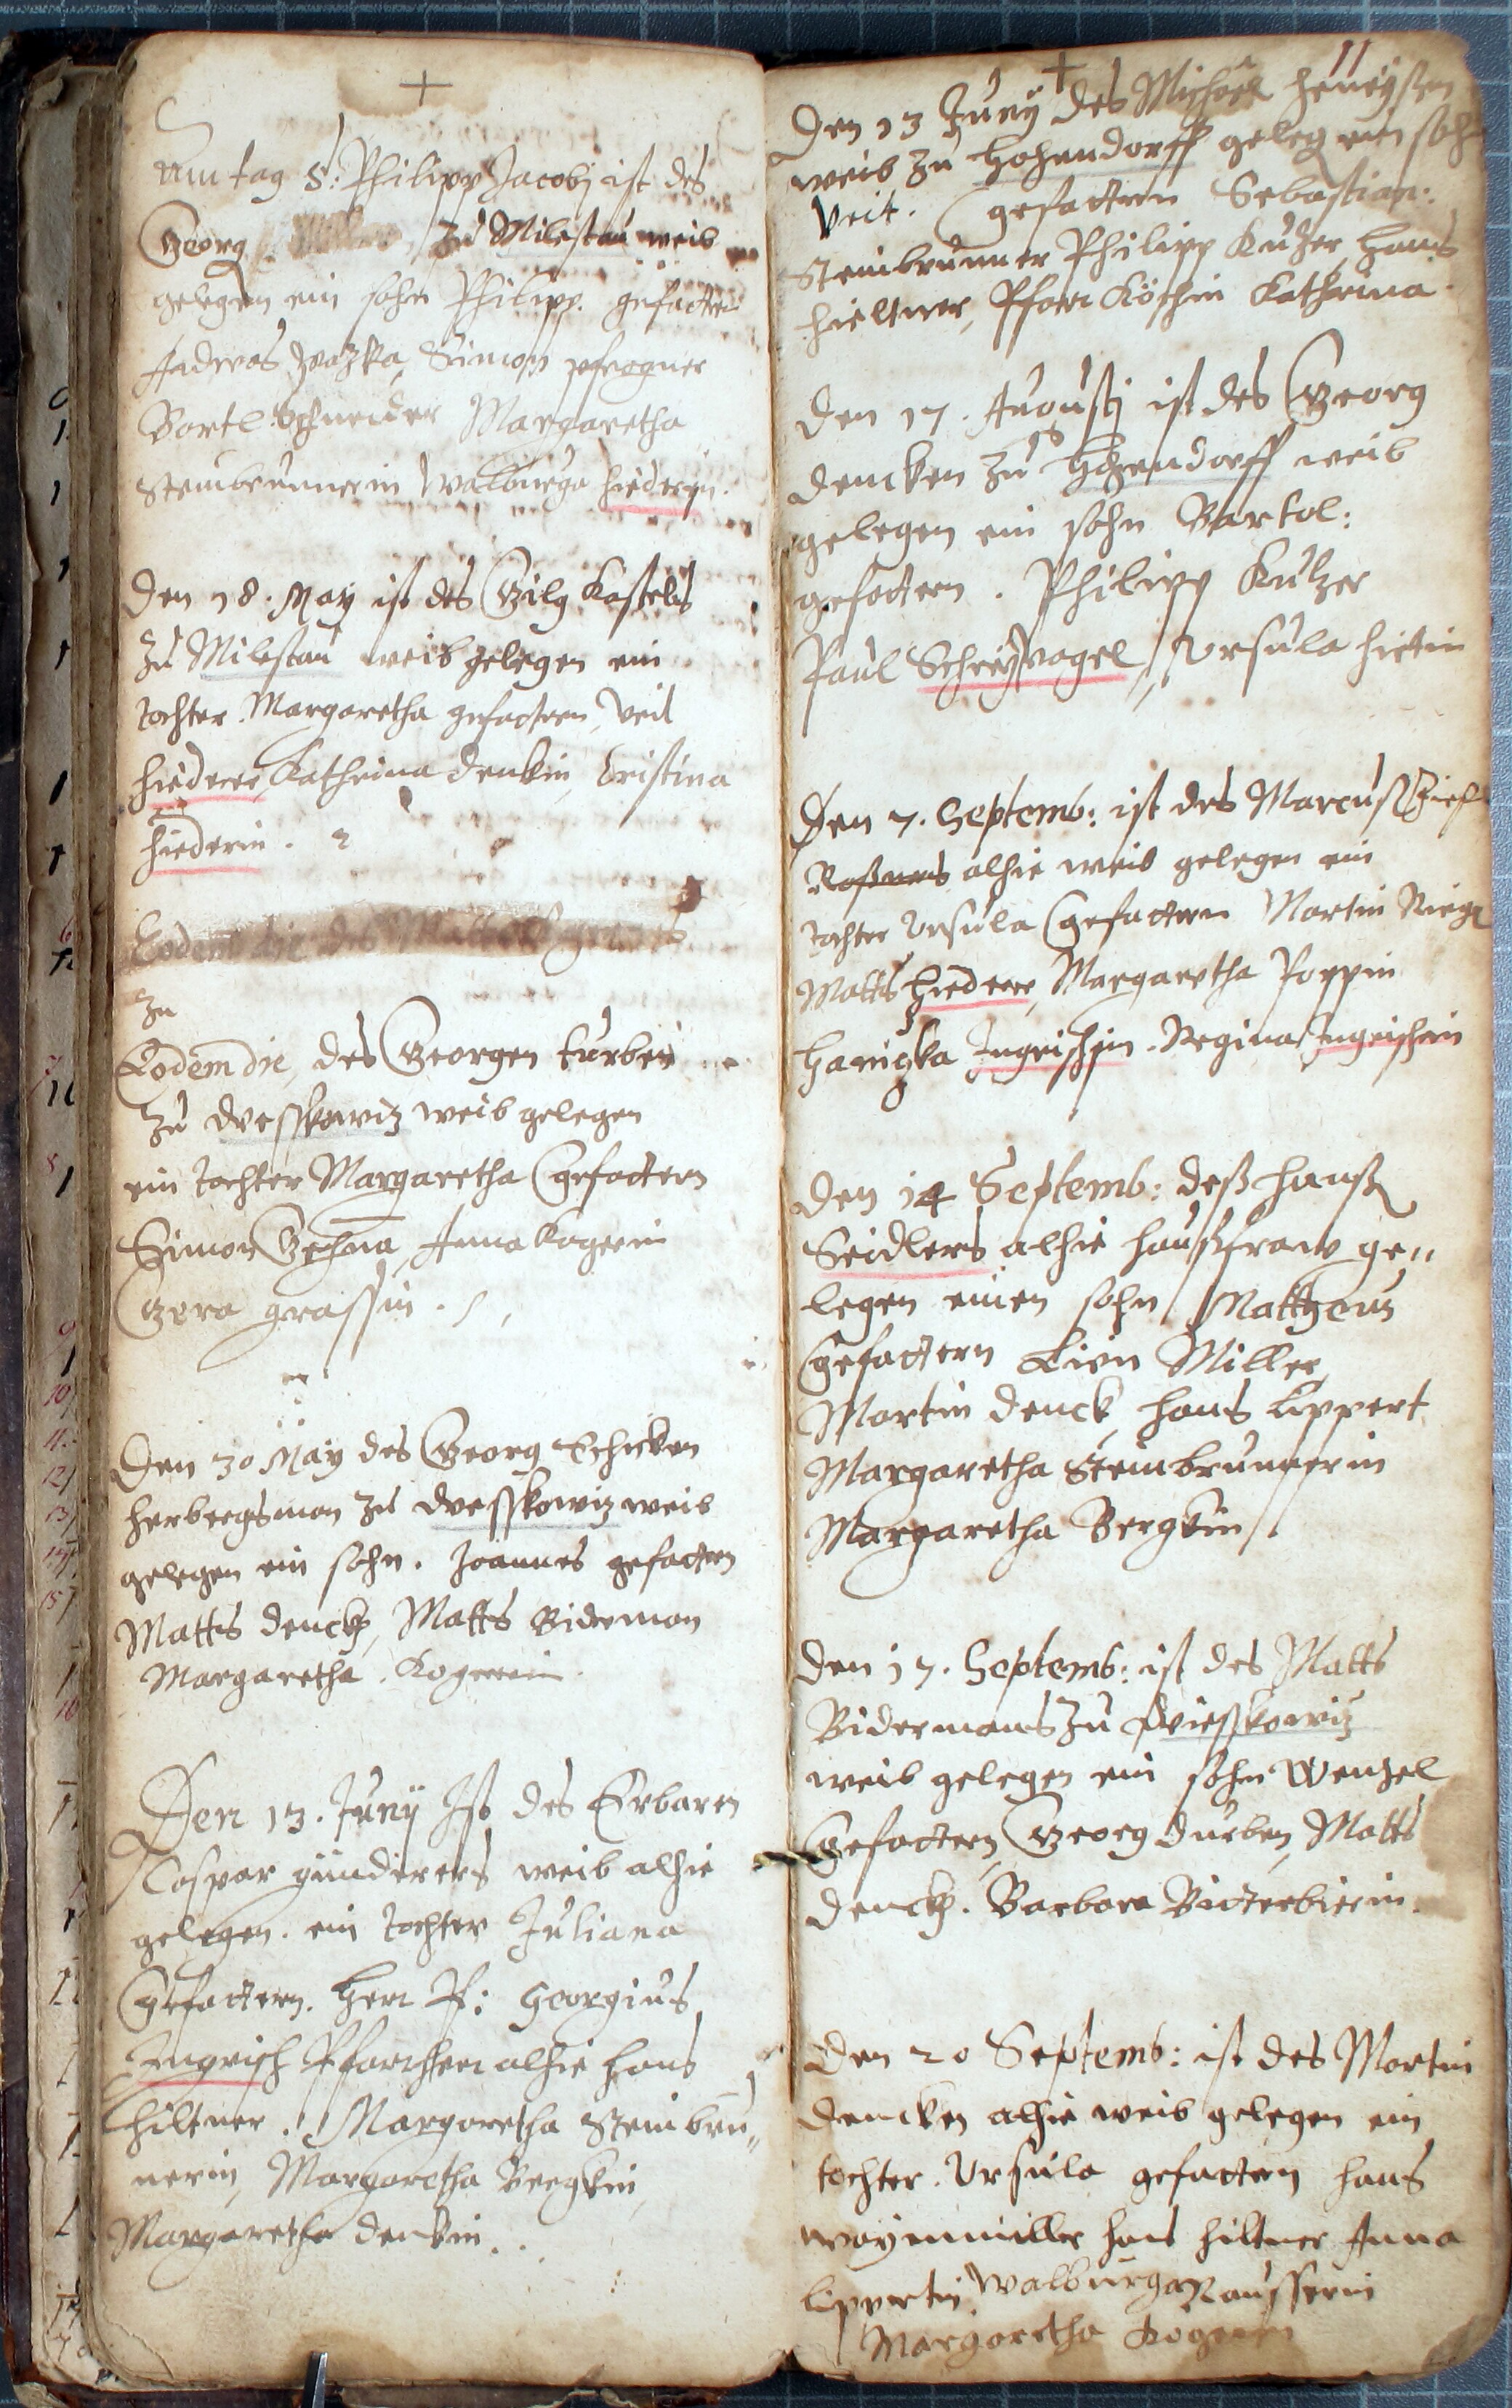 Am tag S: Philipp Jacobj ist des
Georg zu Milestau weib
gelegen ein sohn Philipp. gefattern
Andreas Simon pfrogner
Bartl Schneider Margaretha
Steinbrunnerin Walburga hiederin.
Den 18. May ist des Gilg Kastels
zu Milestau weib gelegen ein
tochter. Margaretha gefattern, Veit
hiederer, Kathrina denkin, Cristina
hiederin.
Eodem die des
Zu
Eodem die, des Georgen turben
zu dresskowiz weib gelegen
ein tochter Margaretha gefattern
Simon Anna Kogerin
grassin.
Den 30 May des Georg Schicken
herbergsman zu dresskowiz weib
gelegen ein sohn. Joannes gefattern
Matts denck, Matts Biderman
Margaretha. Kogererin.
Den 13. Juny Ist des Erbaren
Caspar günderers weib alhie
gelegen. ein tochter Juliana
Gefattern. Herr P: Georgius
Ingrisch Pfarrherr alhie hans
hiltner. Margaretha Steinbru„
nerin, Margaretha Bergkin,
Margaretha denkin.
11
Den 13 Juny des Michael
weib zu Hohendorff geleg ein sohn
Veit. gefattern Sebastian:
Steinbrunner Philipp Kulzer, hans
hieltner, Pfarr Köchin Kathrina.
Den 17. Augustj ist des Georg
dencken zu Hohendorff weib
gelegen ein sohn Bartol:
gefattern. Philipp Kulzer
Paul Schreyvogel, Ursula
Den 7. Septemb: ist des Marcus
alhie weib gelegen ein
tochter Ursula Gefattern Martin
Matts Hiederer, Margaretha Poppin
Ingrischin. Regina Ingrischin
Den 14 Septemb: deß hanß
Seidlers alhie haußfraw ge„
legen einen sohn Mattheus
Gefattern Miller,
Martin denck, hans Lippert
Margaretha Steinbrunnerin
Margaretha Bergkin.
Den 17. Septemb: ist des Matts
Bidermans zu drießkowiz
weib gelegen ein sohn Wenzel
Gefattern, Georg durben, Matts
denck. Barbara Bitterbierin.
Den 20 Septemb: ist des Martin
dencken alhie weib gelegen ein
tochter. Ursula gefattern hans
hans hiltner Anna
Lippertin, Walburga
Margaretha Kogerin